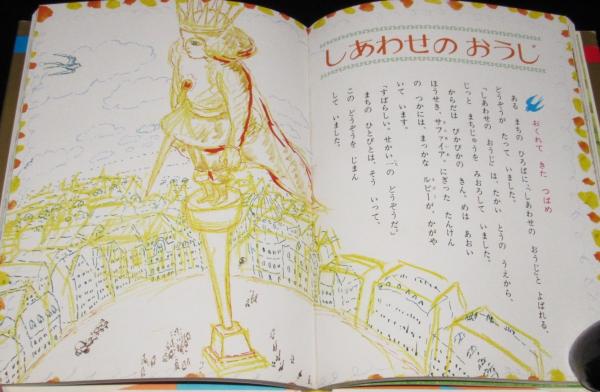 しあわせの おうじ
おくれて きた つばめ
ある まちの ひろばに、「しあわせの おうじ」と よばれる、
どうぞうが たって いました。
「しあわせの おうじ」は、たかい とうの うえから、
じっと まちじゅうを みおろして いました。
からだは ぴかぴかの きん。めは あおい
ほうせき・サファイア。にぎった たんけん
の つかには、まっかな ルビーが、かがや
いて います。
「すばらしい。せかい一の どうぞうだ。」
まちの ひとびとは、そう いって、
この どうぞうを じまん
して いました。